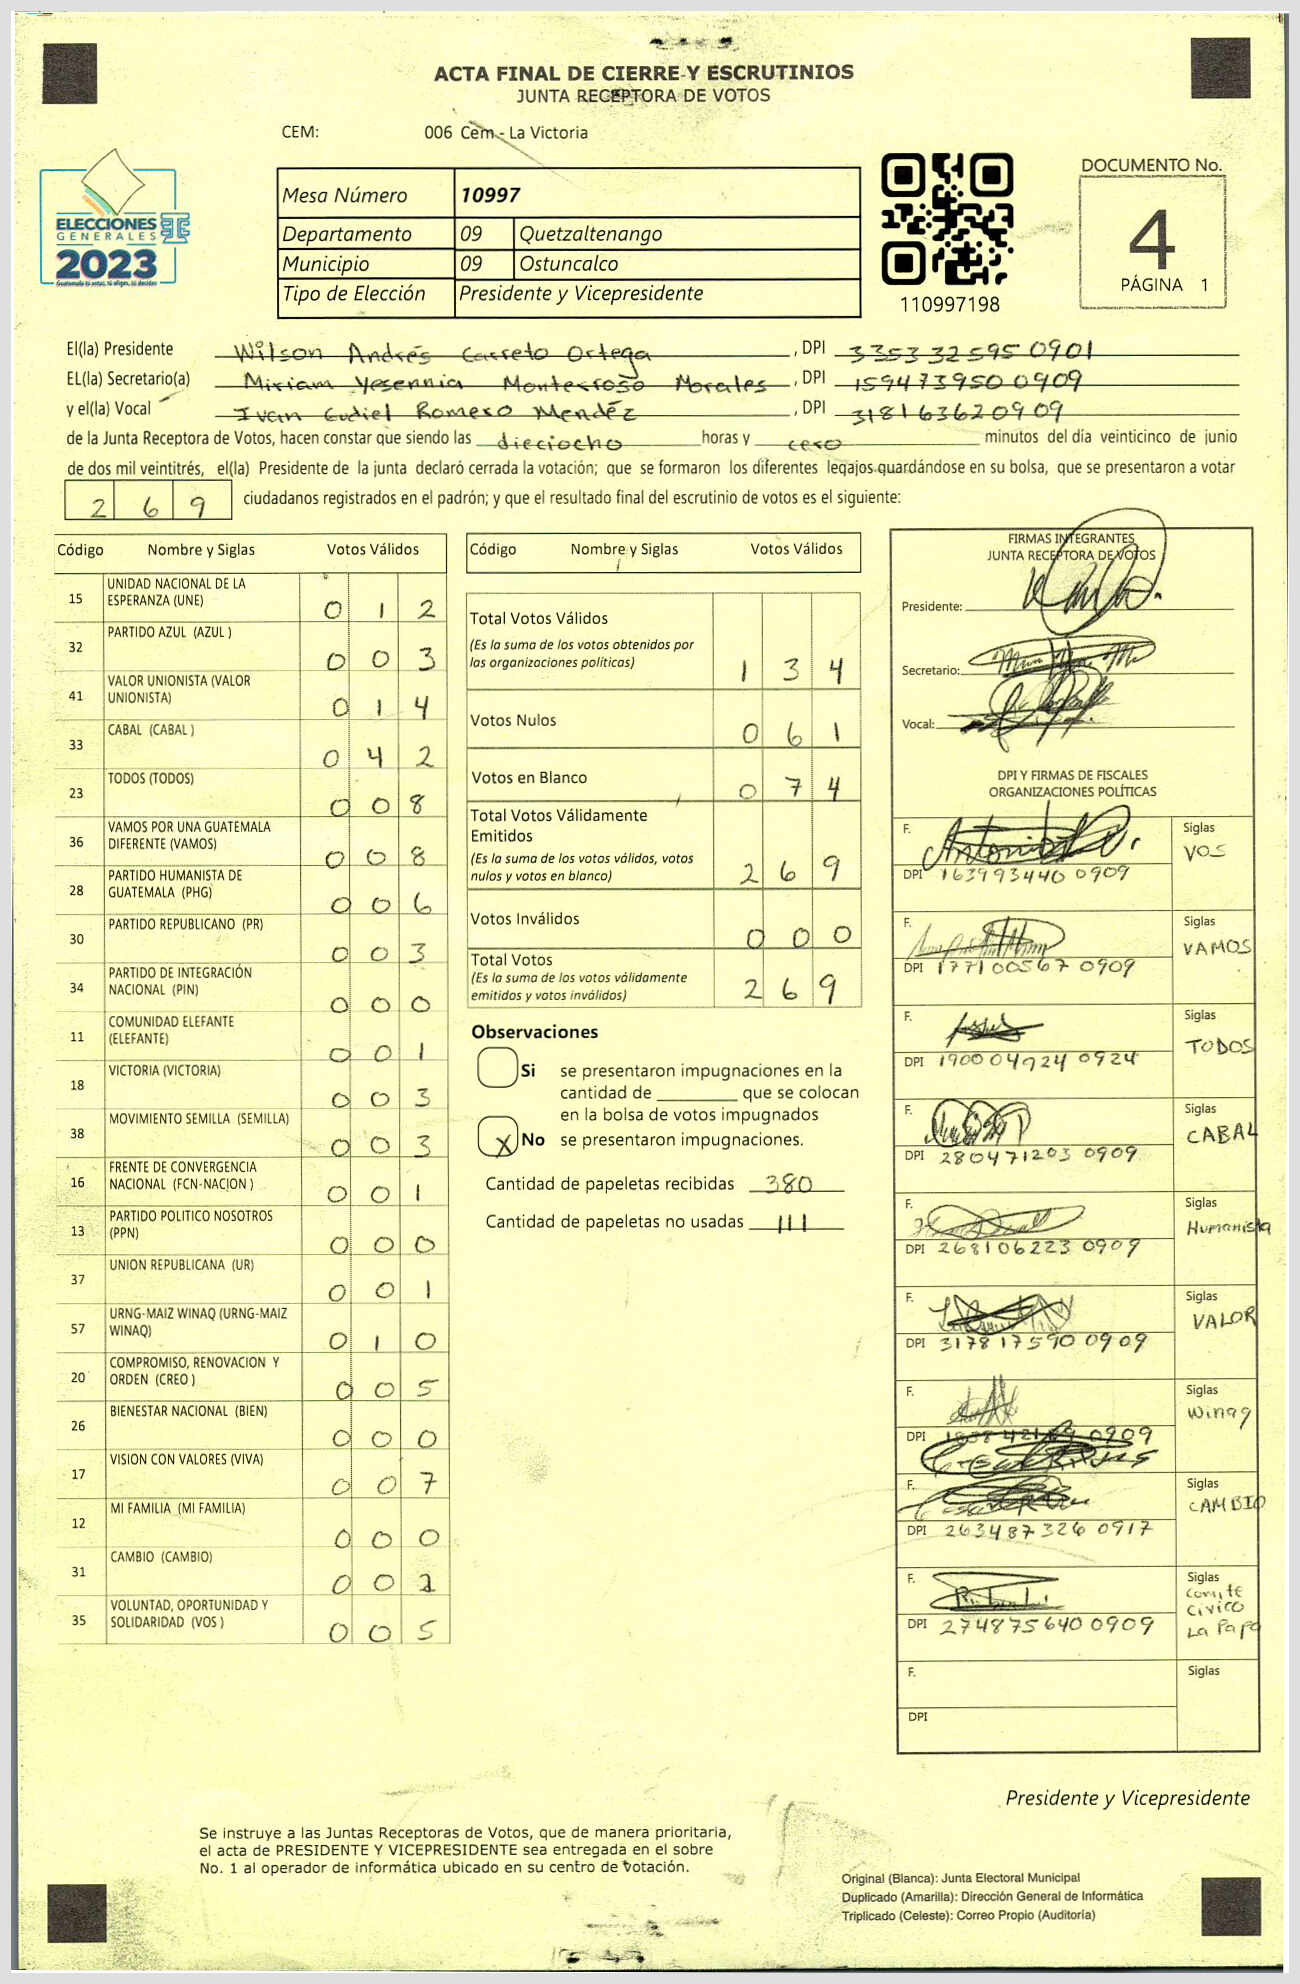 ACTA FINAL DE CIERRE Y ESCRUTINIOS
JUNTA RECEPTORA DE VOTOS
CEM: 006 Cem - La Victoria
ELECCIONES
GENERALES
2023
Guatemala tú votas, tú eliges, tú decides
Mesa Número 10997
Departamento 09 Quetzaltenango
Municipio 09 Ostuncalco
Tipo de Elección Presidente y Vicepresidente
110997198
DOCUMENTO No.
4
PÁGINA 1
El(la) Presidente Wilson Andrés Carreto Ortega , DPI 335332595 0901
EL(la) Secretario(a) Miriam Yesennia Monterroso Morales , DPI 159473950 0909
y el(la) Vocal Ivan Eudiel Romero Mendéz , DPI 318163620909
de la Junta Receptora de Votos, hacen constar que siendo las dieciocho horas y cero minutos del día veinticinco de junio
de dos mil veintitrés, el(la) Presidente de la junta declaró cerrada la votación; que se formaron los diferentes legajos guardándose en su bolsa, que se presentaron a votar
269 ciudadanos registrados en el padrón; y que el resultado final del escrutinio de votos es el siguiente:
Código Nombre y Siglas Votos Válidos
15 UNIDAD NACIONAL DE LA ESPERANZA (UNE) 012
32 PARTIDO AZUL (AZUL ) 003
41 VALOR UNIONISTA (VALOR UNIONISTA) 014
33 CABAL (CABAL ) 042
23 TODOS (TODOS) 008
36 VAMOS POR UNA GUATEMALA DIFERENTE (VAMOS) 008
28 PARTIDO HUMANISTA DE GUATEMALA (PHG) 006
30 PARTIDO REPUBLICANO (PR) 003
34 PARTIDO DE INTEGRACIÓN NACIONAL (PIN) 000
11 COMUNIDAD ELEFANTE (ELEFANTE) 001
18 VICTORIA (VICTORIA) 003
38 MOVIMIENTO SEMILLA (SEMILLA) 003
16 FRENTE DE CONVERGENCIA NACIONAL (FCN-NACION ) 001
13 PARTIDO POLITICO NOSOTROS (PPN) 000
37 UNION REPUBLICANA (UR) 001
57 URNG-MAIZ WINAQ (URNG-MAIZ WINAQ) 010
20 COMPROMISO, RENOVACION Y ORDEN (CREO ) 005
26 BIENESTAR NACIONAL (BIEN) 000
17 VISION CON VALORES (VIVA) 007
12 MI FAMILIA (MI FAMILIA) 000
31 CAMBIO (CAMBIO) 002
35 VOLUNTAD, OPORTUNIDAD Y SOLIDARIDAD (VOS ) 005
Código Nombre y Siglas Votos Válidos
Total Votos Válidos
(Es la suma de los votos obtenidos por
las organizaciones políticas) 134
Votos Nulos 061
Votos en Blanco 074
Total Votos Válidamente
Emitidos
(Es la suma de los votos válidos, votos
nulos y votos en blanco) 269
Votos Inválidos 000
Total Votos
(Es la suma de los votos válidamente
emitidos y votos inválidos) 269
Observaciones
Si se presentaron impugnaciones en la
cantidad de ________ que se colocan
en la bolsa de votos impugnados
X No se presentaron impugnaciones.
Cantidad de papeletas recibidas 380
Cantidad de papeletas no usadas 111
FIRMAS INTEGRANTES
JUNTA RECEPTORA DE VOTOS
Presidente:
Secretario:
Vocal:
DPI Y FIRMAS DE FISCALES
ORGANIZACIONES POLÍTICAS
F. Siglas
DPI 163993440 0909 VOS
F. Siglas
DPI 177100567 0909 VAMOS
F. Siglas
DPI 190004924 0924 TODOS
F. Siglas
DPI 280471203 0909 CABAL
F. Siglas
DPI 268106223 0909 Humanista
F. Siglas
DPI 317817590 0909 VALOR
F. Siglas
DPI 0909 Winaq
F. Siglas
DPI 263487326 0917 CAMBIO
F. Siglas
DPI 274875640 0909 Comite Civico La Papa
F. Siglas
DPI
Presidente y Vicepresidente
Se instruye a las Juntas Receptoras de Votos, que de manera prioritaria,
el acta de PRESIDENTE Y VICEPRESIDENTE sea entregada en el sobre
No. 1 al operador de informática ubicado en su centro de votación.
Original (Blanca): Junta Electoral Municipal
Duplicado (Amarilla): Dirección General de Informática
Triplicado (Celeste): Correo Propio (Auditoría)